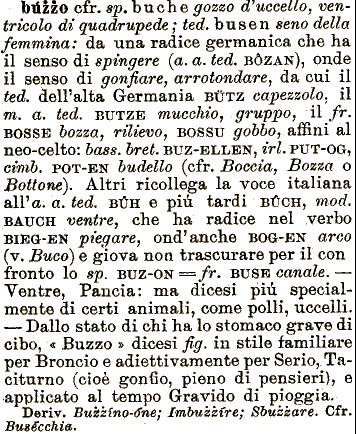 búzzo cfr. sp. buche gozzo d'uccello, ven-
tricolo di quadrupede; ted. busen seno della
femmina: da una radice germanica che ha
il senso di spingere (a. a. ted. BÔZAN), onde
il senso di gonfiare, arrotondare, da cui il
ted. dell'alta Germania BÜTZ capezzolo, il
m. a. ted. BUTZE mucchio, gruppo, il fr.
BOSSE bozza, rilievo, BOSSU gobbo, affini al
neo-celto: bass. bret. BUZ-ELLEN, irl. PUT-OG,
cimb. POT-EN budello (cfr. Boccia, Bozza o
Bottone). Altri ricollega la voce italiana
all'a. a. ted. BÛH e piú tardi BÛCH, mod.
BAUCH ventre, che ha radice nel verbo
BIEG-EN piegare, ond'anche BOG-EN arco
(v. Buco) e giova non trascurare per il con
fronto lo sp. BUZ-ON = fr. BUSE canale. —
Ventre, Pancia: ma dicesi piú special-
mente di certi animali, come polli, uccelli.
— Dallo stato di chi ha lo stomaco grave di
cibo, « Buzzo » dicesi fig. in stile familiare
per Broncio e adiettivamente per Serio, Ta-
citurno (cioè gonfio, pieno di pensieri), e
applicato al tempo Gravido di pioggia.
Deriv. Bużżíno-óne; Imbużżíre; Sbużżare. Cfr.
Busécchia.